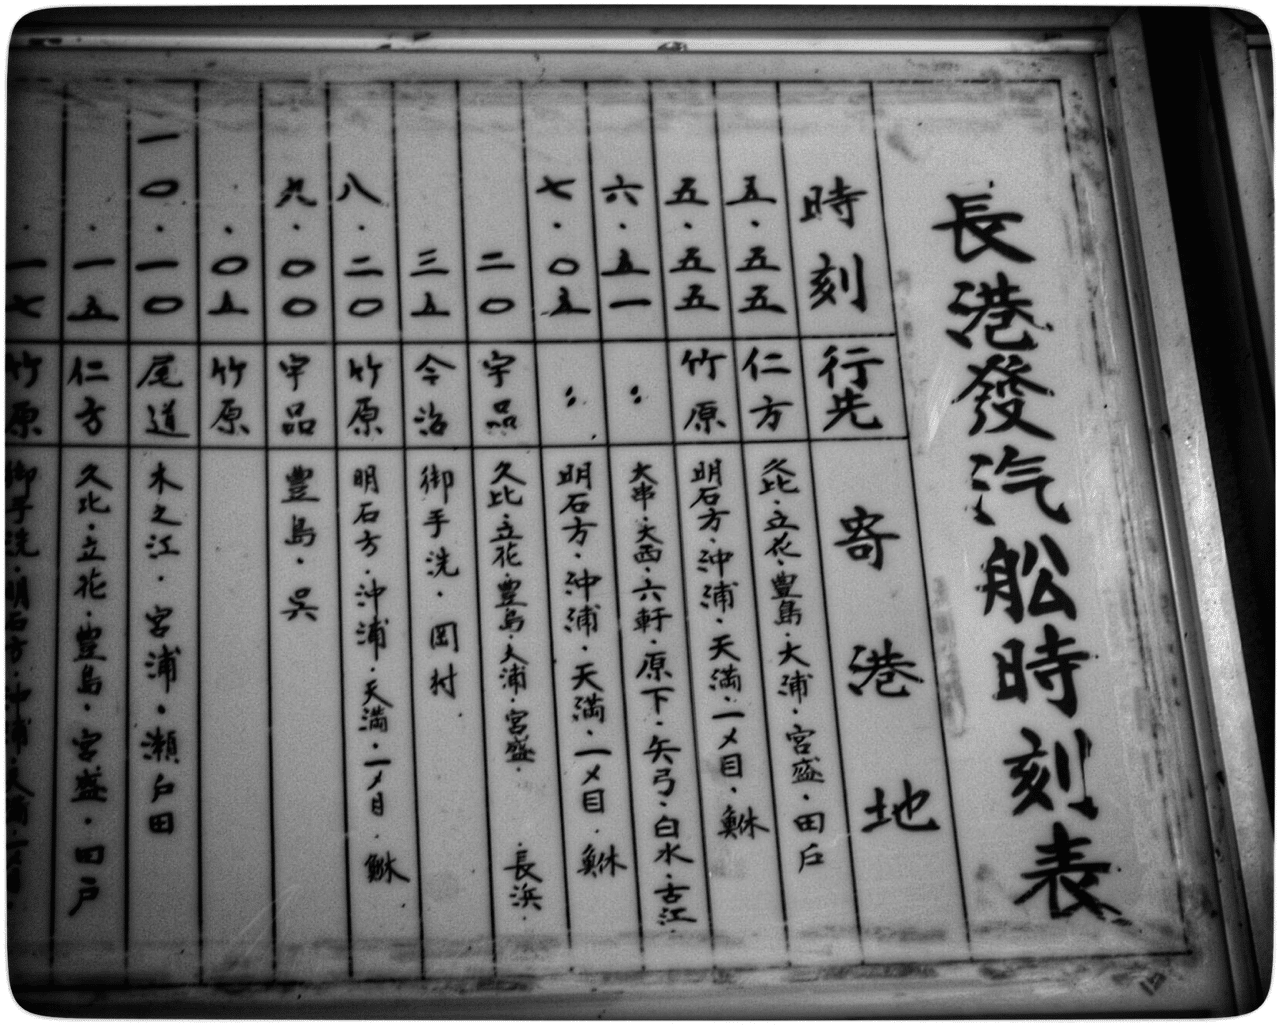 長港發汽船時刻表
時刻 行先 寄港地
五・五五 仁方 久比・立花・豊島・大浦・宮盛・田戸
五・五五 竹原 明石方・沖浦・天満・一〆目・鮴
六・五一 〃 大串・大西・六軒・原下・矢弓・白水・古江
七・〇五 〃 明石方・沖浦・天満・一〆目・鮴
二〇 宇品 久比・立花・豊島・大浦・宮盛・長浜
三五 今治 御手洗・岡村
八・二〇 竹原 明石方・沖浦・天満・一〆目・鮴
九・〇〇 宇品 豊島・呉
・〇五 竹原
一〇・一〇 尾道 木之江・宮浦・瀬戸田
・一五 仁方 久比・立花・豊島・宮盛・田戸
・一七 竹原 御手洗・明石方・沖浦・天満・一〆目